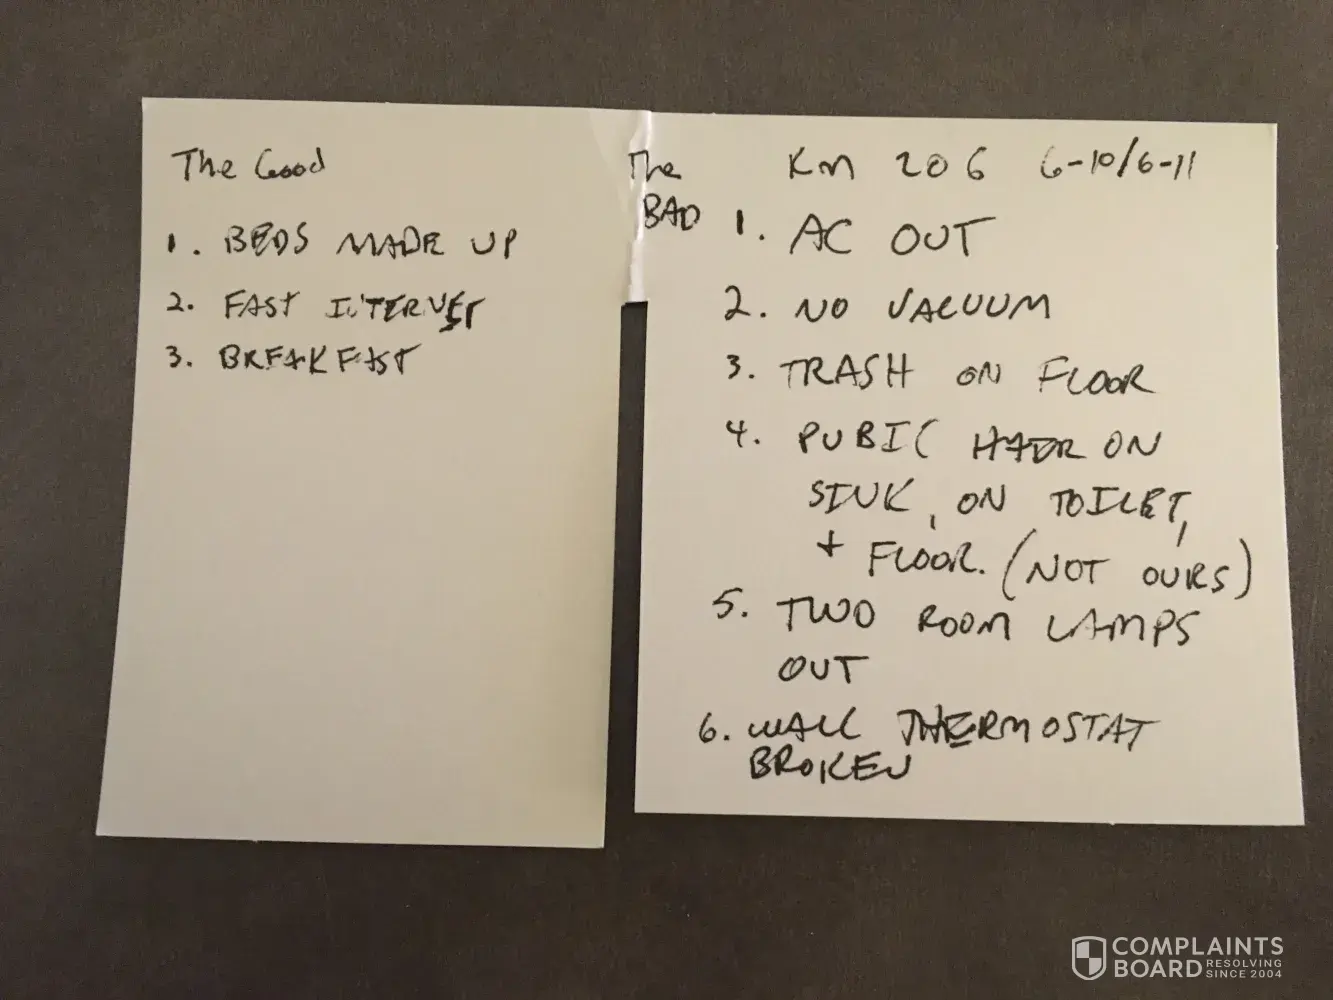 The Good
1. BEDS MADE UP
2. FAST INTERNET
3. BREAKFAST
The
BAD
Rm 206 6-10/6-11
1. AC OUT
2. NO VACUUM
3. TRASH ON FLOOR
4. PUBIC HAIR ON
SINK, ON TOILET,
+ FLOOR. (NOT OURS)
5. TWO ROOM LAMPS
OUT
6. WALL THERMOSTAT
BROKEN
COMPLAINTS
BOARD RESOLVING
SINCE 2004